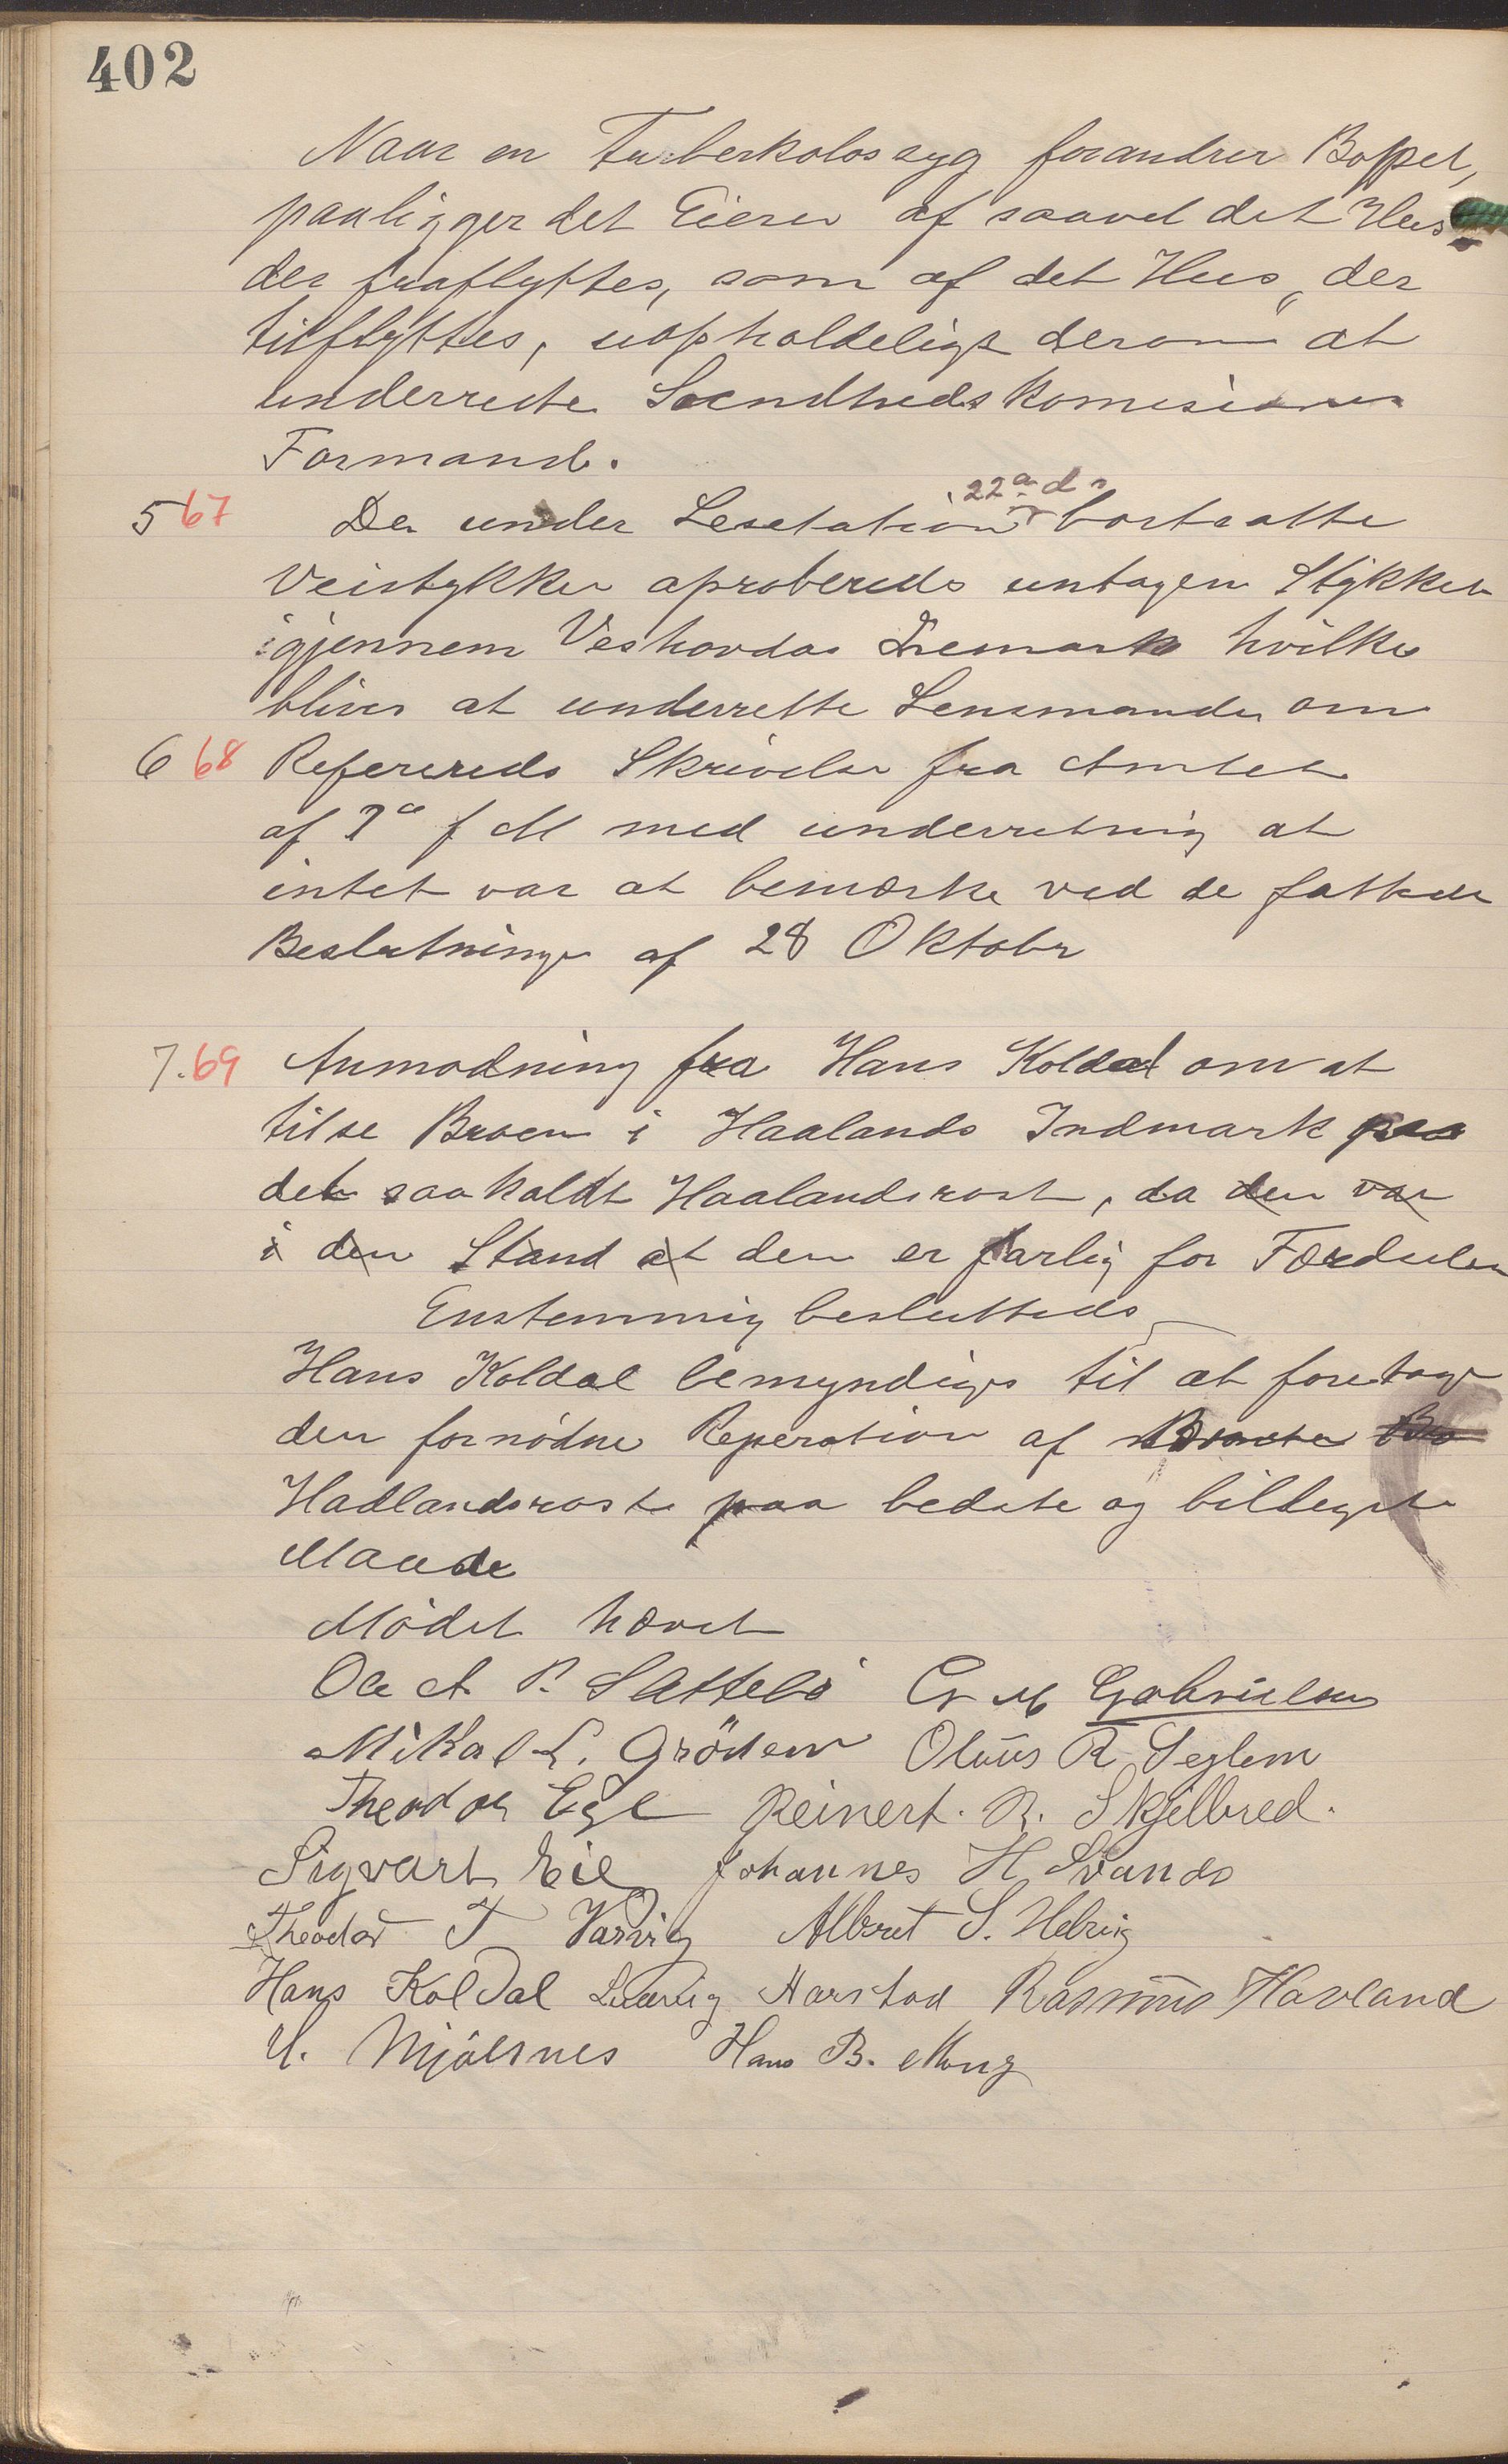 402
Naar en Tuberkolossyg forandrer Bopæl,
paaligger det Eieren af saavel det Hus
der fraflyttes, som af det Hus, der
tilflyttes, uopholdeligt derom at
underrette Sundhedskomisionens
Formand.
22de ds
5 67 De under Lesetation bortsatte
Veistykker aproberedes untagen Stykket
igjennem Veshovdas hvilke
bliver at underrette Lensmanden om
6 68 Refereredes Skrivelse fra Amtet
af 7de f M med underretning at
intet var at bemærke ved de fattede
Beslutninger af 28 Oktober
7. 69 Anmodning fra Hans Koldal om at
tilse Broen i Haalands Indmark paa
det saakaldt Haalandsrost, da den var
i den Stand at den er farlig for Færdselen
Enstemmig besluttedes
Hans Koldal bemyndiges til at foretage
den fornødne Reperation af
Hadlandsroste paa bedste og billigste
Maade
Mødet hævet
Ole A P. Sattelø G M Gabrielsen
Mikal L. Gröden Olaus R Seglem
Theodor Ege Reinert. R. Skjelbred.
Sigvart Eie Johannes H Svands
Theodor T Varvig Albret S. Helvig
Hans Koldal Ludvig Harstad Rasmus Havland
H. Mjølsnes Hans B. Mong